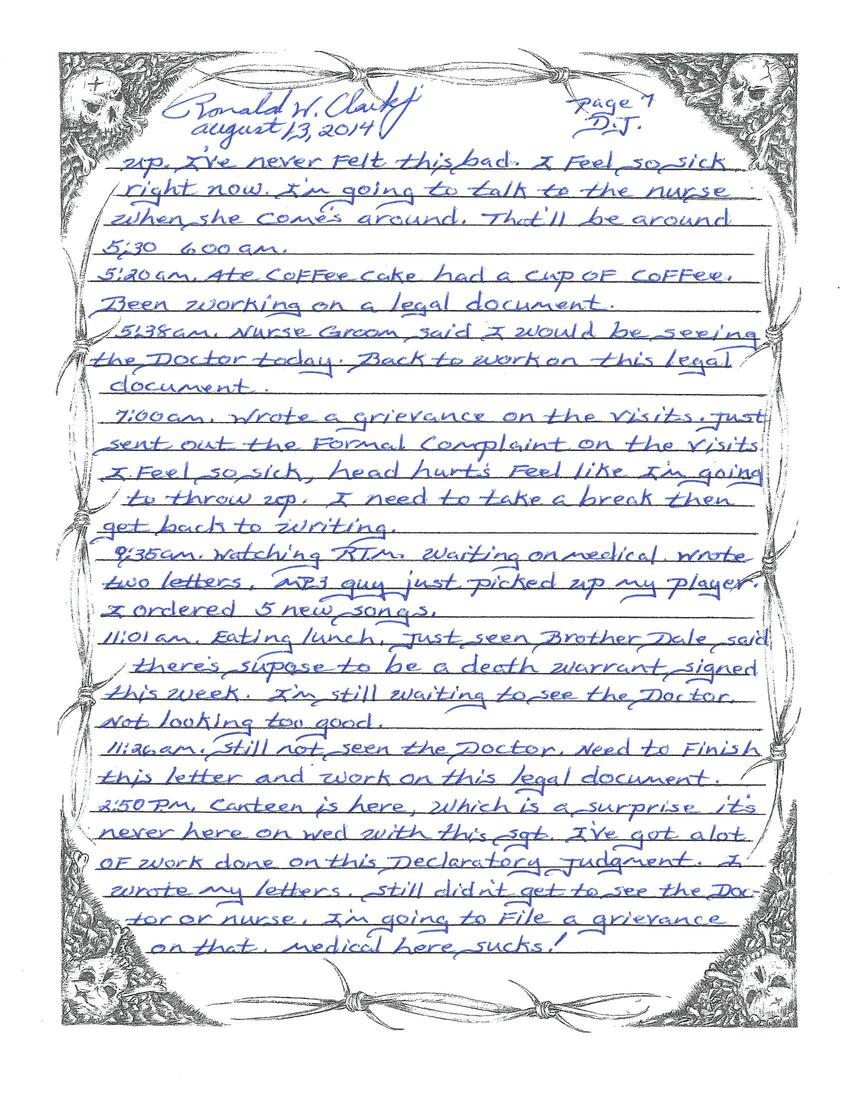 Ronald W. Clark Jr
page 7
august 13, 2014
D.J.
up. I've never Felt this bad. I Feel so sick
right now. I'm going to talk to the nurse
when she come's around. That'll be around
5:30 6:00 am.
5:20 am. Ate CoFFee cake had a cup oF CoFFee.
Been working on a legal document.
5:38 am. Nurse Groom said I would be seeing
the Doctor today. Back to work on this legal
document.
7:00 am. Wrote a grievance on the visits. Just
sent out the Formal Complaint on the visits.
I Feel so sick, head hurt's Feel like I'm going
to throw up. I need to take a break then
get back to writing.
9:35 am. Watching RTM. Waiting on medical. Wrote
two letters. MP3 guy just picked up my player.
I ordered 5 new songs.
11:01 am. Eating lunch. Just seen Brother Dale said
there's supose to be a death warrant signed
this week. I'm still waiting to see the Doctor.
Not looking too good.
11:26 am. Still not seen the Doctor. Need to Finish
this letter and work on this legal document.
2:50 P.M. Canteen is here, which is a surprise it's
never here on wed with this sgt. I've got alot
oF work done on this Declaratory Judgment. I
wrote my letters. Still didn't get to see the Doc-
tor or nurse. I'm going to File a grievance
on that. Medical here sucks!